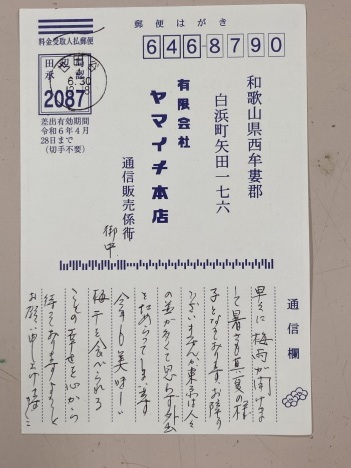 郵便はがき
646-8790
料金受取人払郵便
田辺局
承認
2087
差出有効期間
令和6年4月
28日まで
(切手不要)
和歌山県西牟婁郡
白浜町矢田一七六
有限会社
ヤマイチ本店
通信販売係
御中
通信欄
早々に梅雨が開けま
して暑さも真夏の様
子となっております。お障り
ございませんか東京は人々
の並が多くて思わず
と

今年も美味しい
梅干を食べられる
ことの幸せを心から
待っております。よろしく
お願い申し上げます。